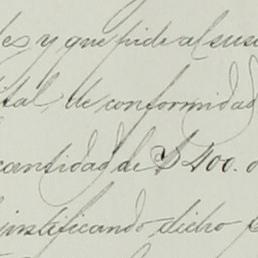 les y que pide al sus
ital, de conformidad
cantidad de $400. o
justificando dicho